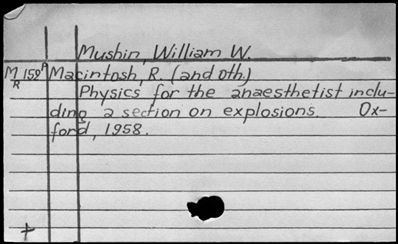 Mushin, William W.
M 159A Macintosh, R. (and oth.)
R Physics for the anaesthetist inclu-
ding a section on explosions. Ox-
ford, 1958.